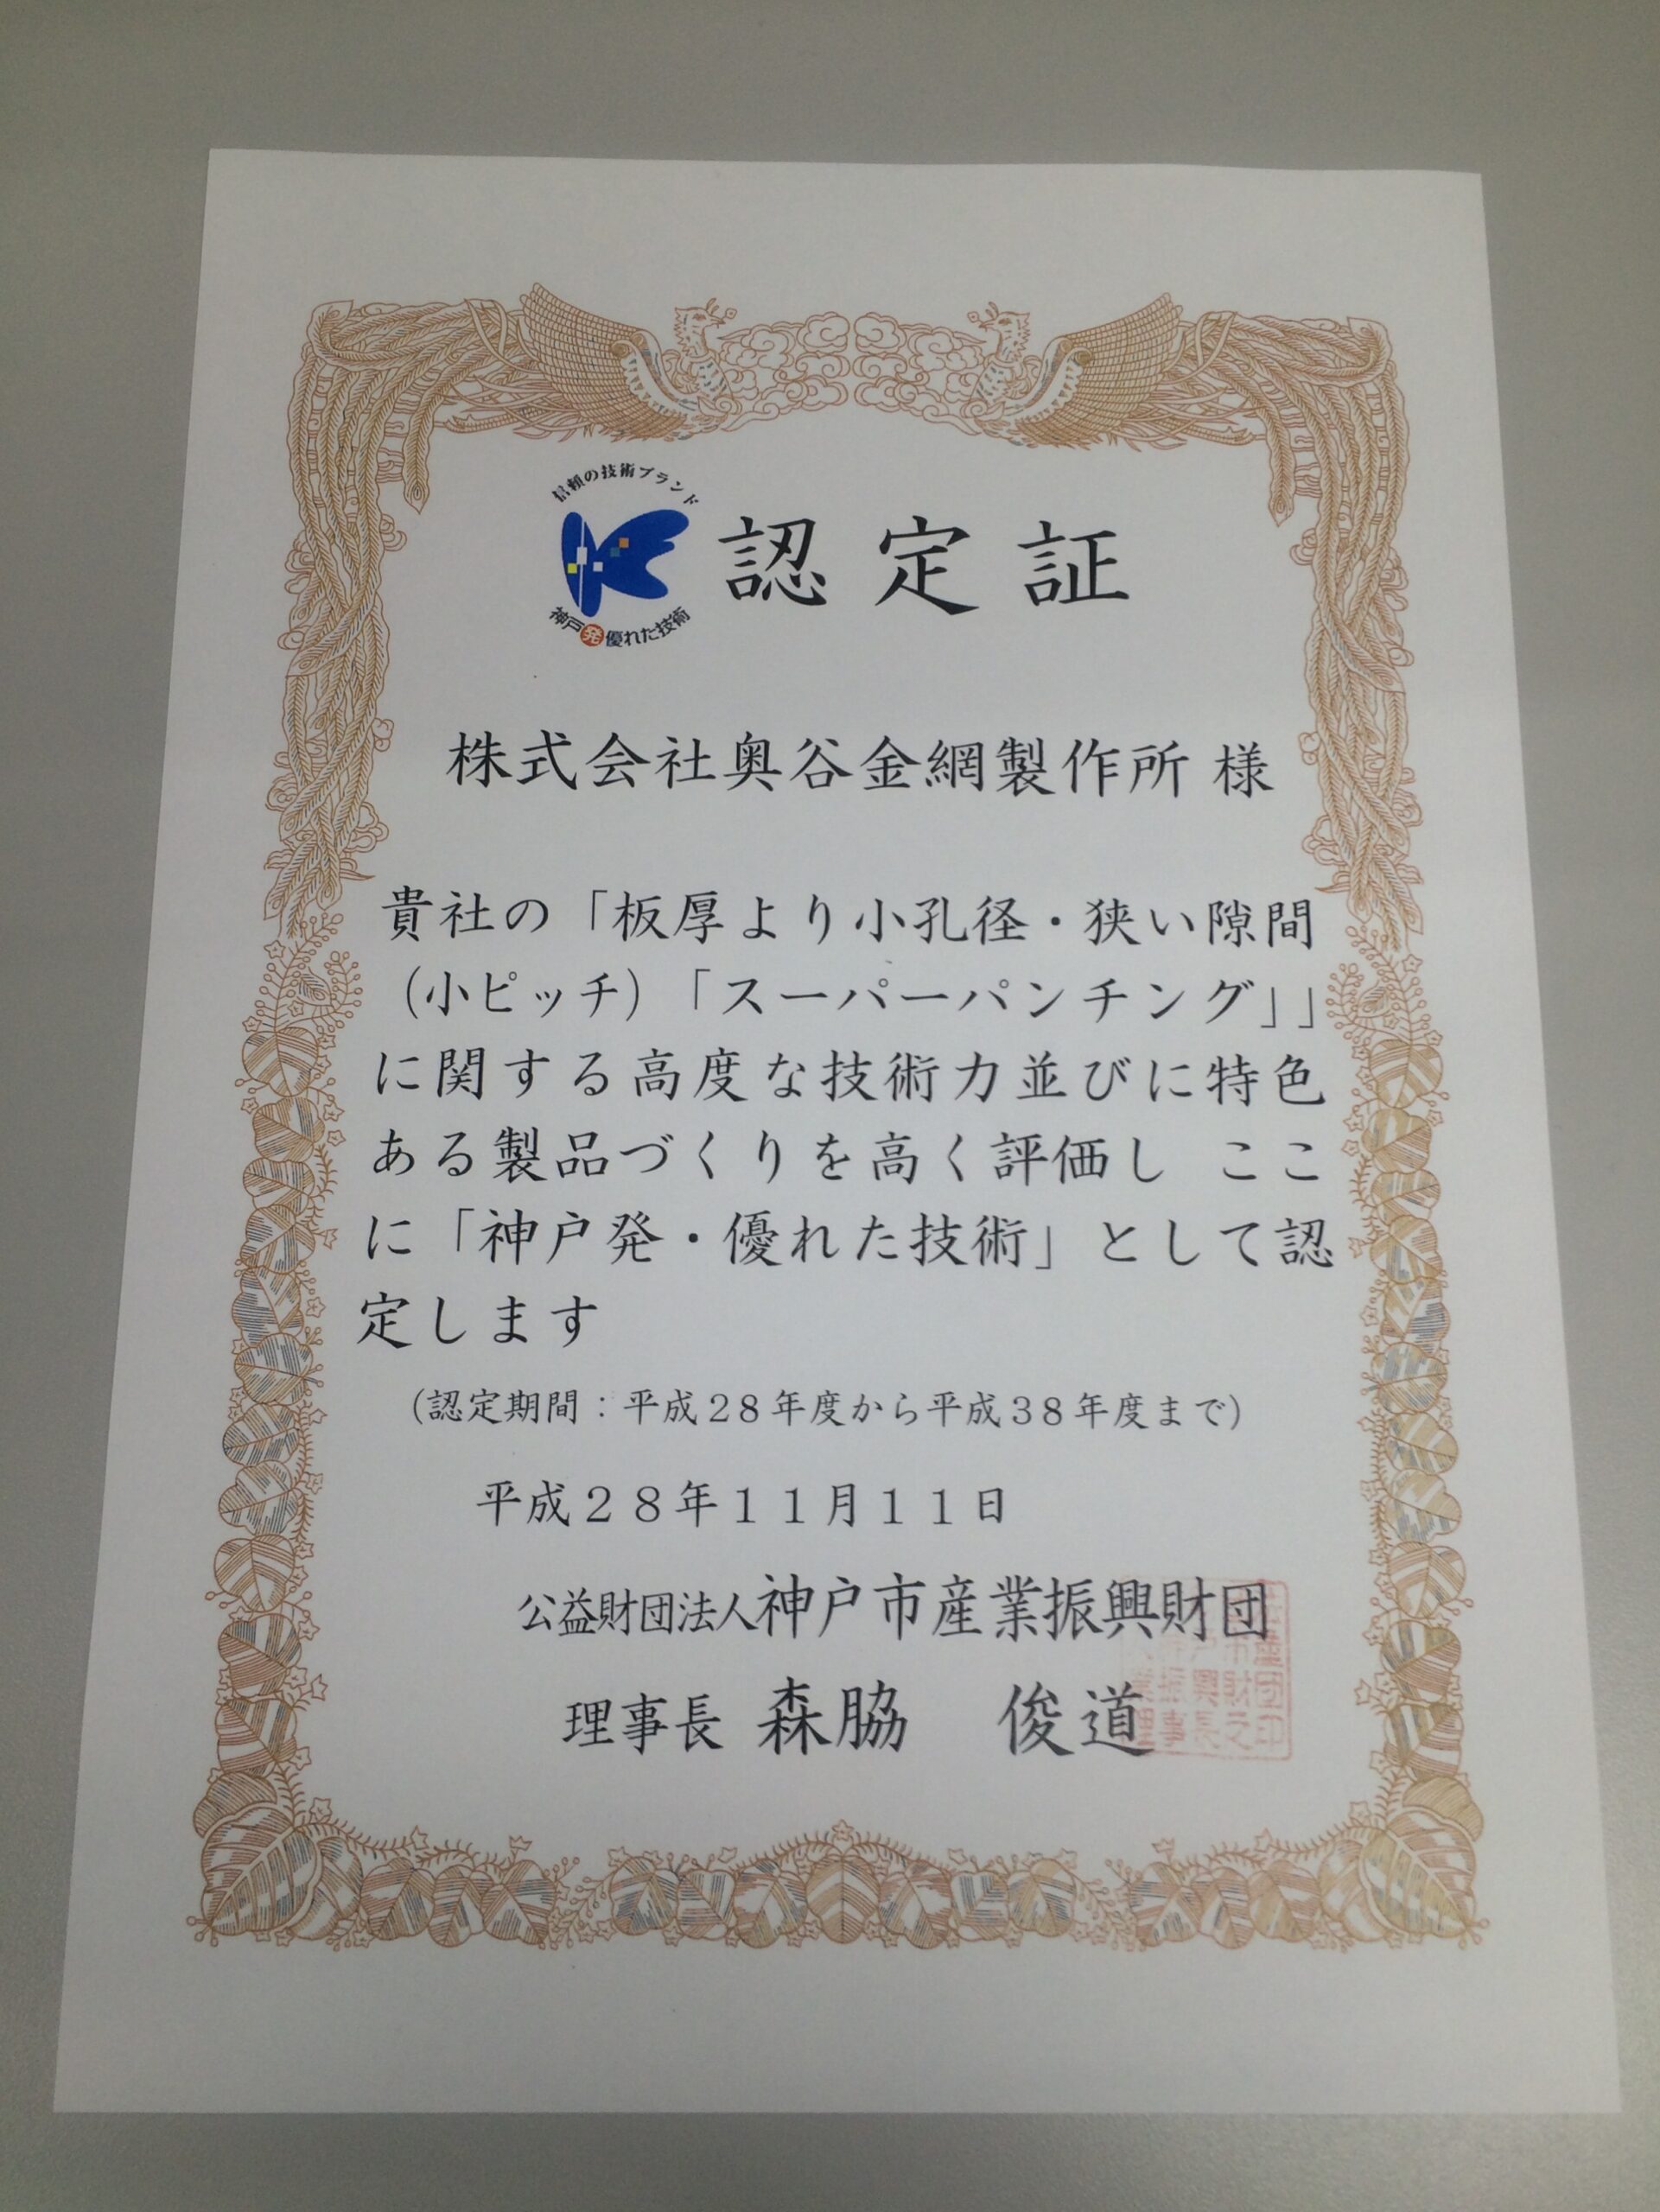 信頼の技術ブランド
神戸発優れた技術
認定証
株式会社奥谷金網製作所 様
貴社の「板厚より小孔径・狭い隙間
(小ピッチ)「スーパーパンチング」」
に関する高度な技術力並びに特色
ある製品づくりを高く評価し ここ
に「神戸発・優れた技術」として認
定します
(認定期間:平成28年度から平成38年度まで)
平成28年11月11日
公益財団法人神戸市産業振興財団
理事長 森脇 俊道